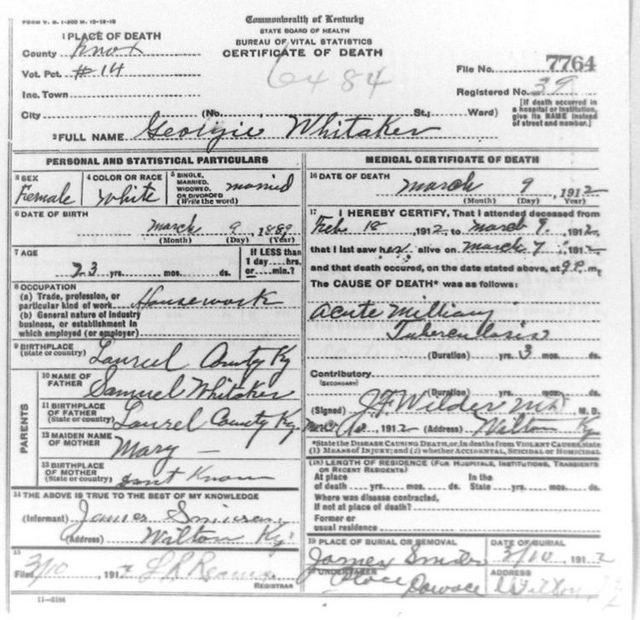 FORM V. S. 1-200 M. 12-12-10
Commonwealth of Kentucky
STATE BOARD OF HEALTH
BUREAU OF VITAL STATISTICS
CERTIFICATE OF DEATH
1 PLACE OF DEATH
County Knox
Vot. Pct. #14
Inc. Town
City (No. St.; Ward)
6484
File No. 7764
Registered No. 39
[If death occurred in a hospital or institution, give its NAME instead of street and number.]
2 FULL NAME Georgie Whitaker
PERSONAL AND STATISTICAL PARTICULARS
3 SEX Female
4 COLOR OR RACE White
5 SINGLE, MARRIED, WIDOWED, OR DIVORCED (Write the word) married
6 DATE OF BIRTH
march 9, 1889
(Month) (Day) (Year)
7 AGE
23 yrs. mos. ds.
If LESS than 1 day....hrs. or....min.?
8 OCCUPATION
(a) Trade, profession, or particular kind of work Housework
(b) General nature of industry business, or establishment in which employed (or employer)
9 BIRTHPLACE (State or country) Laurel County Ky
PARENTS
10 NAME OF FATHER Samuel Whitaker
11 BIRTHPLACE OF FATHER (State or country) Laurel County Ky
12 MAIDEN NAME OF MOTHER Mary —
13 BIRTHPLACE OF MOTHER (State or country) Dont Know
14 THE ABOVE IS TRUE TO THE BEST OF MY KNOWLEDGE
(Informant) James
(Address) Wilton Ky
15
Filed 3/10 191
REGISTRAR
11-3184
MEDICAL CERTIFICATE OF DEATH
16 DATE OF DEATH
march 9, 1912
(Month) (Day) (Year)
17 I HEREBY CERTIFY, That I attended deceased from
Feb. 18, 1912, to march 9, 1912,
that I last saw her alive on march 7, 1912
and that death occured, on the date stated above, at 9 P. m.
The CAUSE OF DEATH* was as follows:
acute Milliary
Tuberculosis
(Duration) yrs. 3 mos. ds.
Contributory
(SECONDARY)
(Duration) yrs. mos. ds.
(Signed) J. F. Wilder M.D. M. D.
March 10, 1912 (Address) Wilton Ky
*State the DISEASE CAUSING DEATH, or, in deaths from VIOLENT CAUSES, state (1) MEANS OF INJURY; and (2) whether ACCIDENTAL, SUICIDAL or HOMICIDAL
(18) LENGTH OF RESIDENCE (FOR HOSPITALS, INSTITUTIONS, TRANSIENTS OR RECENT RESIDENTS)
At place of death yrs. mos. ds.
In the State yrs. mos. ds.
Where was disease contracted, If not at place of death?
Former or usual residence
19 PLACE OF BURIAL OR REMOVAL
James Place
DATE OF BURIAL
3/10, 1912
UNDERTAKER
ADDRESS
Wilton